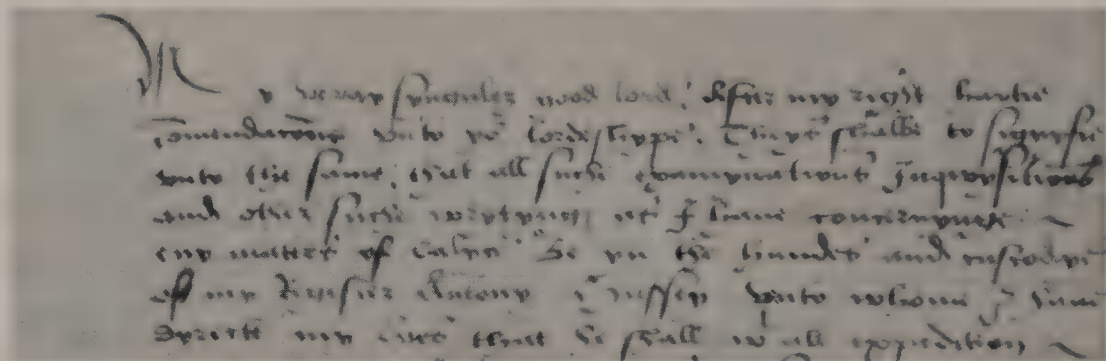 My veray synguler good lord, After my right hartie
comendacons vnto yor lordeshippe, Thies shalbe to signyfie
vnto the same, that all such examynations Inquysitions
and other such wrytyng as I haue concernyng
eny matter of Calys be yn the handes and custodye
of my Antony vnto whome I haue
dyrect my that he shall wt all expedition